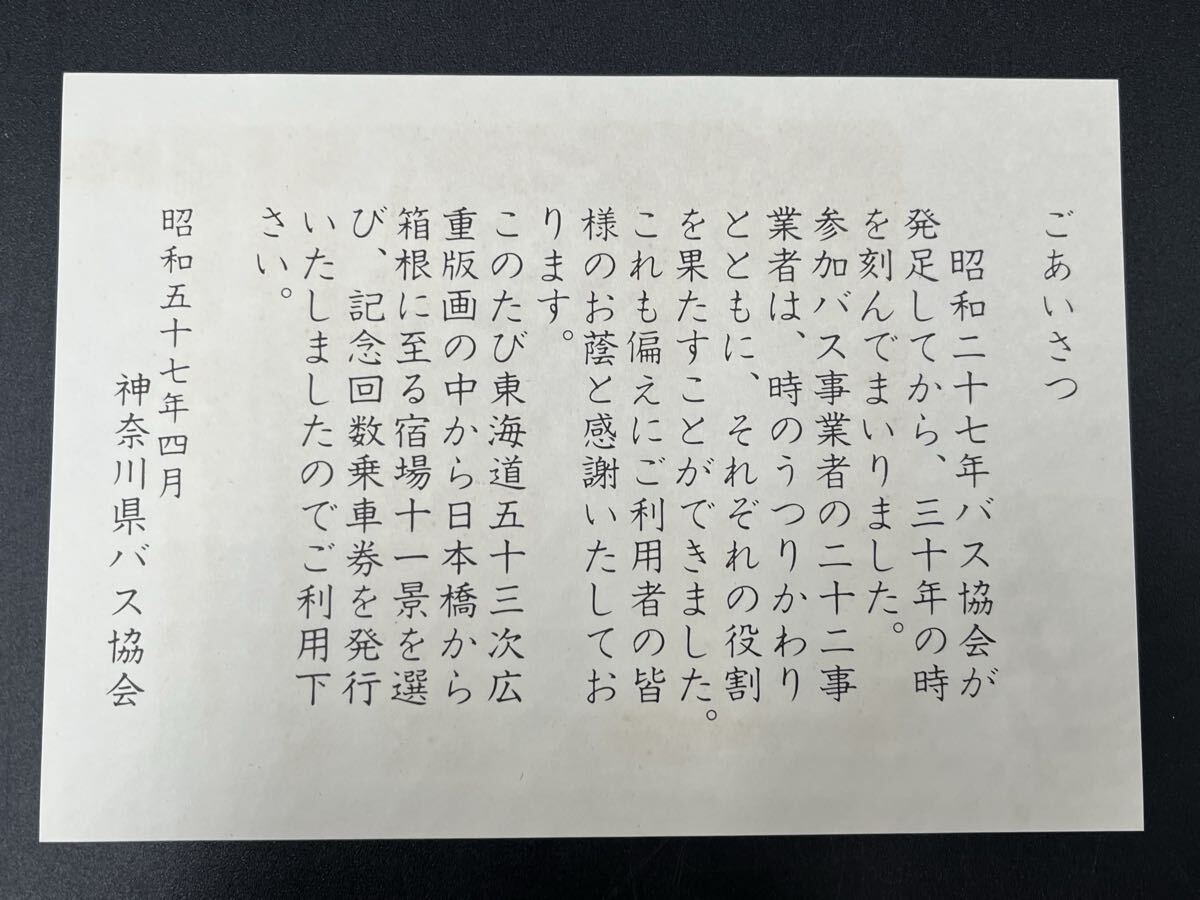 ごあいさつ
昭和二十七年バス協会が
発足してから、三十年の時
を刻んでまいりました。
参加バス事業者の二十二事
業者は、時のうつりかわり
とともに、それぞれの役割
を果たすことができました。
これも偏えにご利用者の皆
様のお蔭と感謝いたしてお
ります。
このたび東海道五十三次広
重版画の中から日本橋から
箱根に至る宿場十一景を選
び、記念回数乗車券を発行
いたしましたのでご利用下
さい。
昭和五十七年四月
神奈川県バス協会